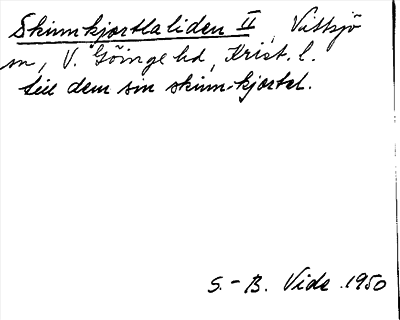 Skinnkjortlaliden II, Vittsjö
sn, V. Göinge hd, Krist. l.
dem sin skinn-kjortel.
S.-B. Vide. 1950